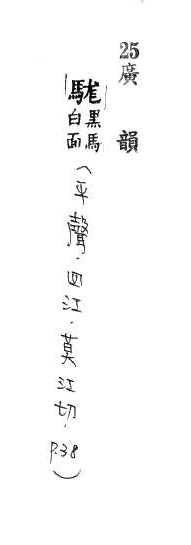 25廣韻
駹黑馬白面(平聲.四江.莫江切.P.38)